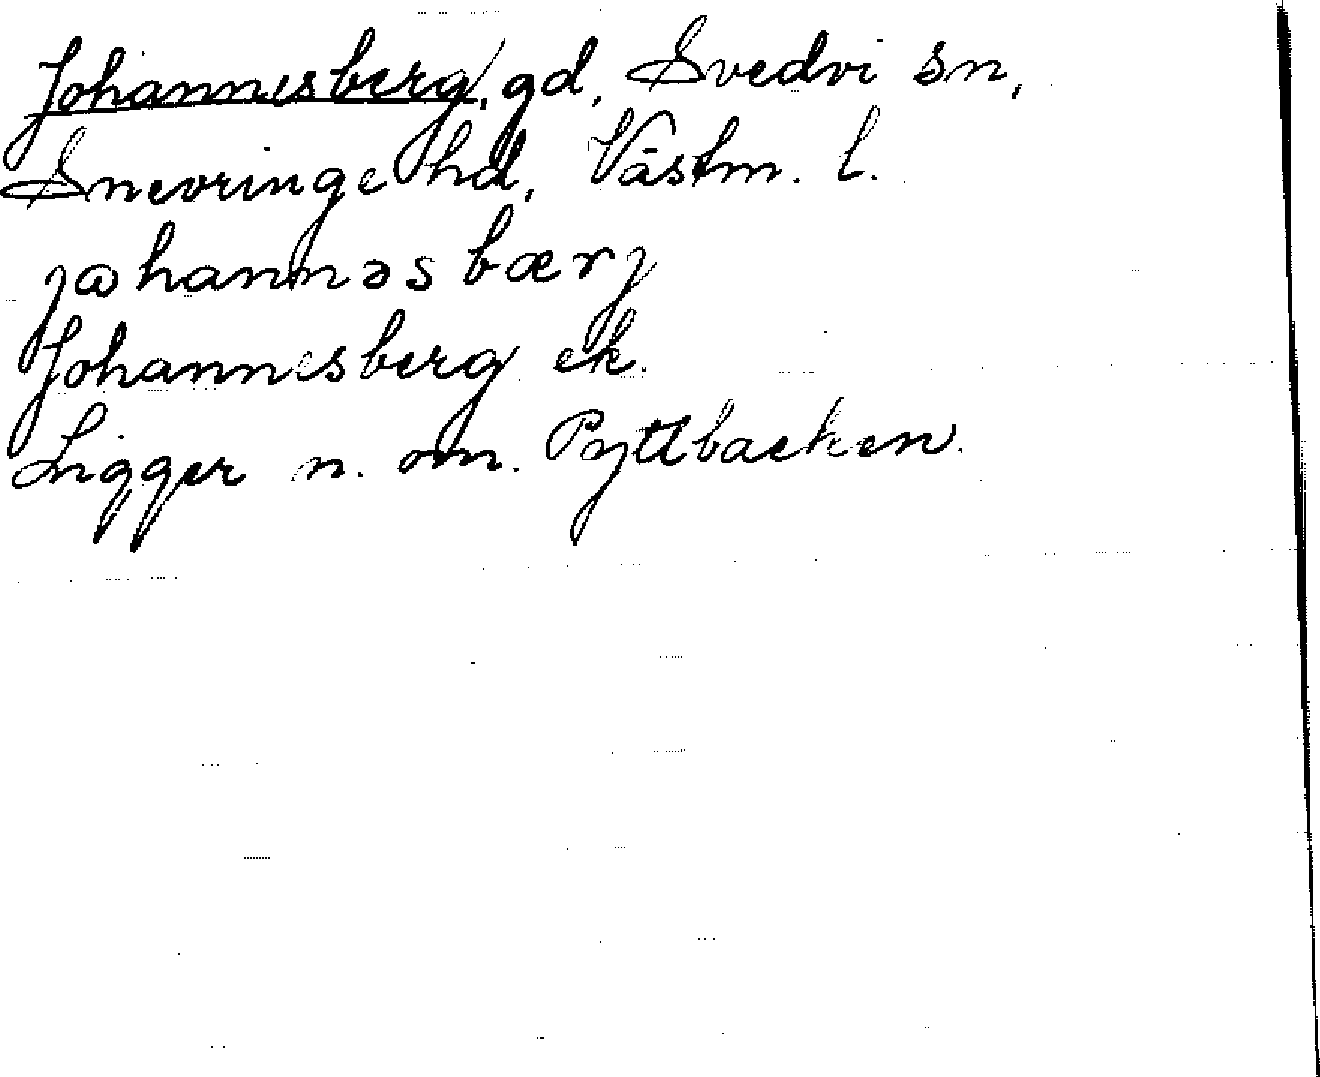 Johannesberg, gd, Svedvi sn,
Snevringe hd, Västm. l.
jɷhannəsbærj
Johannesberg ek.
Ligger n. om. Pyttbacken.